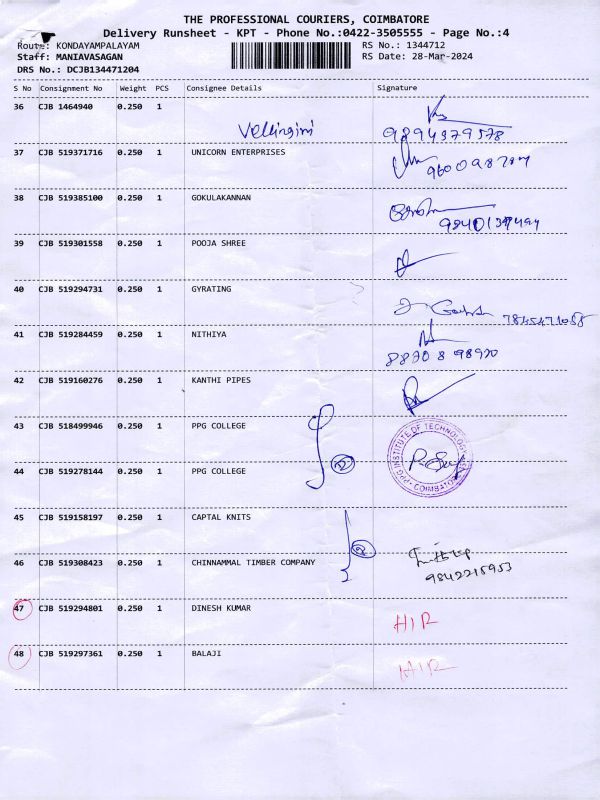 THE PROFESSIONAL COURIERS, COIMBATORE
Delivery Runsheet - KPT - Phone No.:0422-3505555 - Page No.:4
Route: KONDAYAMPALAYAM
RS No.: 1344712
Staff: MANIAVASAGAN
RS Date: 28-Mar-2024
DRS No.: DCJB134471204
S No Consignment No Weight PCS Consignee Details Signature
36 CJB 1464940 0.250 1
9894379578
37 CJB 519371716 0.250 1 UNICORN ENTERPRISES
38 CJB 519385100 0.250 1 GOKULAKANNAN
39 CJB 519301558 0.250 1 POOJA SHREE
40 CJB 519294731 0.250 1 GYRATING
41 CJB 519284459 0.250 1 NITHIYA
42 CJB 519160276 0.250 1 KANTHI PIPES
43 CJB 518499946 0.250 1 PPG COLLEGE
PPG INSTITUTE OF TECHNOLOGY
COIMBATORE
44 CJB 519278144 0.250 1 PPG COLLEGE
45 CJB 519158197 0.250 1 CAPTAL KNITS
46 CJB 519308423 0.250 1 CHINNAMMAL TIMBER COMPANY
9842215953
47 CJB 519294801 0.250 1 DINESH KUMAR HIR
48 CJB 519297361 0.250 1 BALAJI HIR